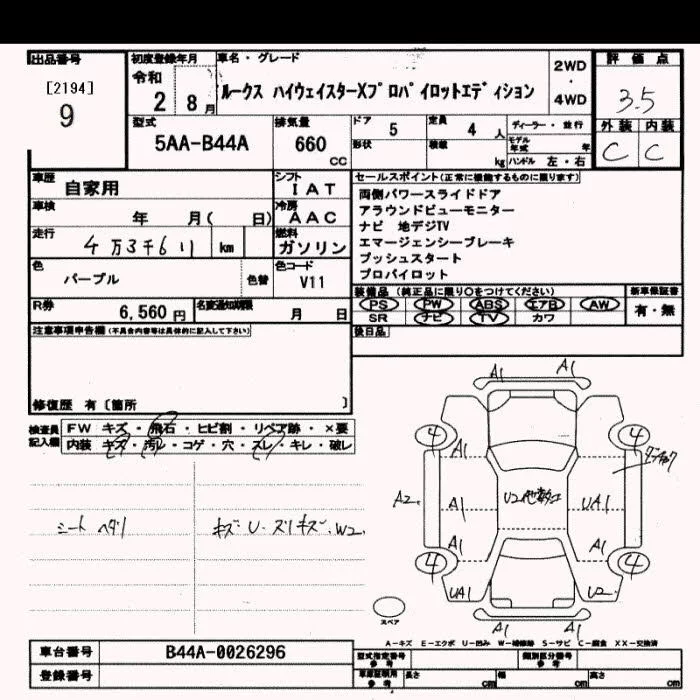 出品番号
[2194]
9
初度登録年月
令和
2 8月
車名・グレード
ルークス ハイウェイスターXプロパイロットエディション
2WD
・
4WD
評価点
3.5
型式
5AA-B44A
排気量
660
CC
ドア 5
定員 4 人
ディーラー・並行
形状
積載 kg
モデル年式 年
ハンドル 左・右
外装 内装
C C
車歴 自家用
シフト
IAT
車検 年 月( 日)
冷房
AAC
走行 4万3千611 km
燃料
ガソリン
色
パープル
色替
色コード
V11
R券 6,560円
名変通知期限 月 日
セールスポイント(正常に機能するものに限ります)
両側パワースライドドア
アラウンドビューモニター
ナビ 地デジTV
エマージェンシーブレーキ
プッシュスタート
プロパイロット
装備品 (純正品に限り○をつけてください)
新車保証書
PS PW ABS エアB AW
SR ナビ TV カワ
有・無
後日品
注意事項申告欄(不具合内容等は具体的に記入して下さい)
修復歴 有〔箇所 〕
検査員
記入欄
FW キズ・飛石・ヒビ割・リペア跡・×要
内装 キズ・汚レ・コゲ・穴・スレ・キレ・破レ
シート ヘタリ
キズ U・スリキズ・W2,
A1 A1
4 4
A1
A2, A1 UA1
A1 A1
4 4
UA1 U2
A1 A1
スペア
A-キズ E-エクボ U-凹み W-補修跡 S-サビ C-腐食 XX-交換済
車台番号 B44A-0026296
登録番号
型式指定番号
参考
類別区分番号
参考
車庫証明用
参考
長さ cm
幅 cm
高さ cm